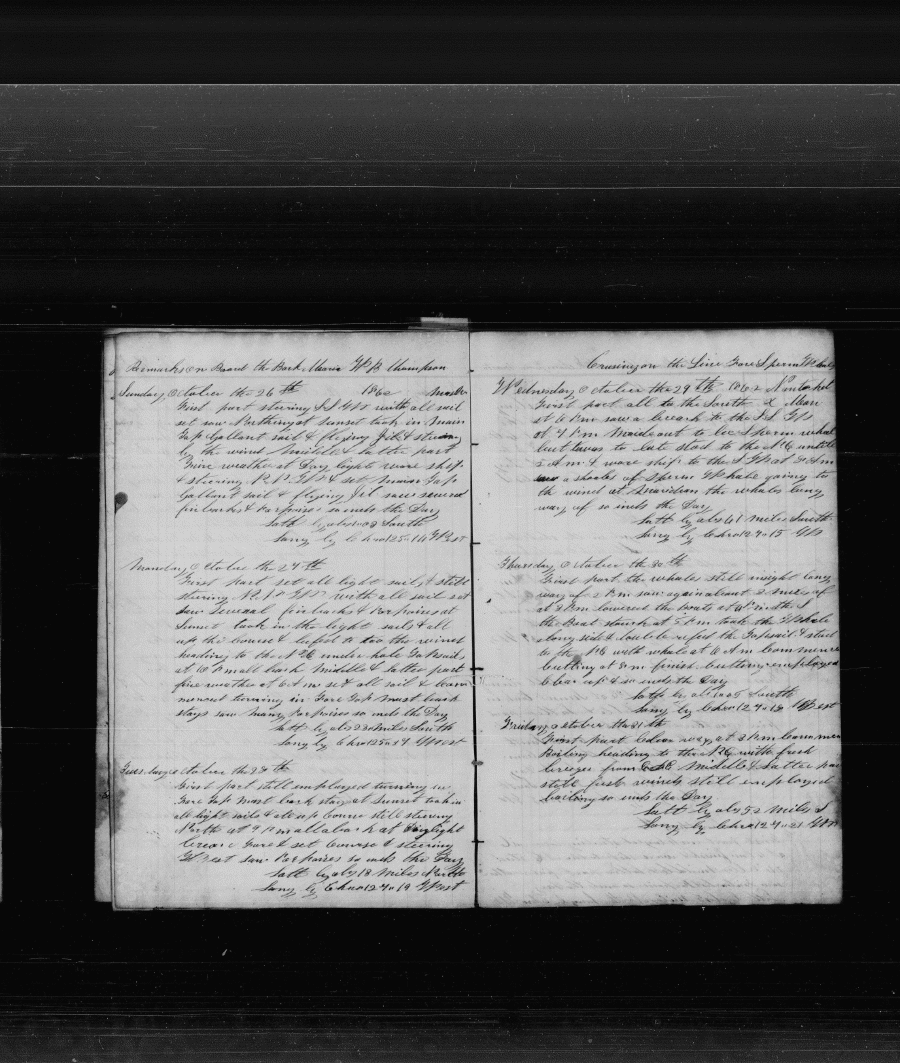 Remarks on Board the Bark Maria W B thompson
Sunday October the 26th 1862 master
First part stering S S W with all sail
set saw Nothing at Sunset took in main
Gap Gallant sail & flying Jib & stering
by the wind middle & latter part
Fine weather at Day light wore ship
& stering N N W & set Main Gap
Gallant sail & flying Jib saw several
finbacks & Porpoises so ends the Day
Latt by abs 1.08 South
Long by Chro 125.16 West
Monday October the 27th
First part set all light sails & still
stering N N W with all sail set
Saw several finbacks & Porpoises at
Sunset took in the light sails & all
up the Course & lufed to the wind
heading to the N E under hole Gapsails
at 10 P m all back middle & latter part
fine weather at 6 A m set all sail &
turning in Fore Gap mast back
stays saw many Porpoises so ends the Day
Latt by abs 23 miles South
Long by Chro 125.19 West
Tuesday October the 28th
First part still employed turning in
Fore Gap mast back stays at Sunset took in
all light sails & all up Course still stering
North at 9 P m all aback at Daylight
brace Fore & set Course & stering
West saw Porpoises so ends the Day
Latt by abs 18 miles North
Long by Chro 124.19 West
Crusing on the Line Fore Sperm Whales
Wednesday October the 29th 1862
First part all to the South
at 6 P m saw a breach to the S S W
at 7 P m Made out to be Sperm whales
but twas to late stod to the N E untill
2 A m & wore ship to the S W at 8 A m
saw a shoole of Sperm Whales going to
the wind at Meridian the whales long
way of so ends the Day
Latt by abs 41 miles South
Long by Chro 124.15 W
Thursday October the 30th
First part the whales still insight long
way of 2 P m saw again about 2 miles of
at 3 P m lowered the boats at 4 P m the S
the Boat struck at 5 P m took the Whale
along side & double refed the Gapsails & stod
to the N E with whale at 6 A m Commence
cutting at 8 m finish cutting employed
Clear up & so ends the Day
Latt by abs 1.05 South
Long by Chro 124.18 West
Friday October the 31th
First part Clear way at 2 P m
Boiling heading to the N E with fresh
breezes from E S E Middle & Latter part
still fresh winds still employed
boiling so ends the Day
Latt by abs 52 Miles S
Long by Chro 124.21 West